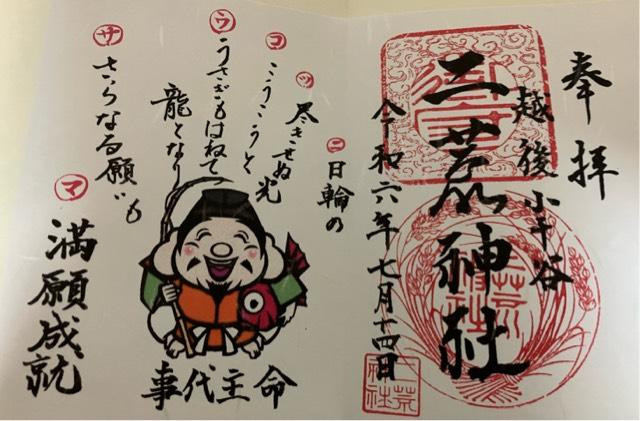 奉拝
越後小千谷
二荒神社
令和六年七月十四日
二荒神社
二荒神社
㊁日輪の
㋡尽きせぬ光
㋙こうこうと
㋒うさぎもはねて
龍となり
㋚さらなる願いも
㋮満願成就
事代主命